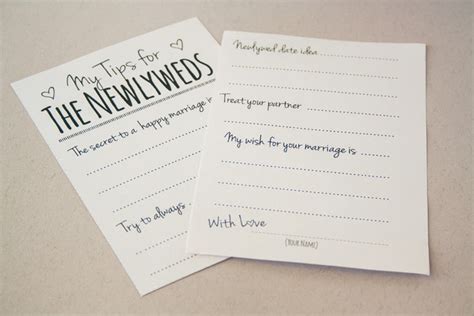 My Tips for
THE NEWLYWEDS
The secret to a happy marriage is
Try to always ......
Newlywed date idea
Treat your partner
My wish for your marriage is ...
With Love
(YOUR NAME)